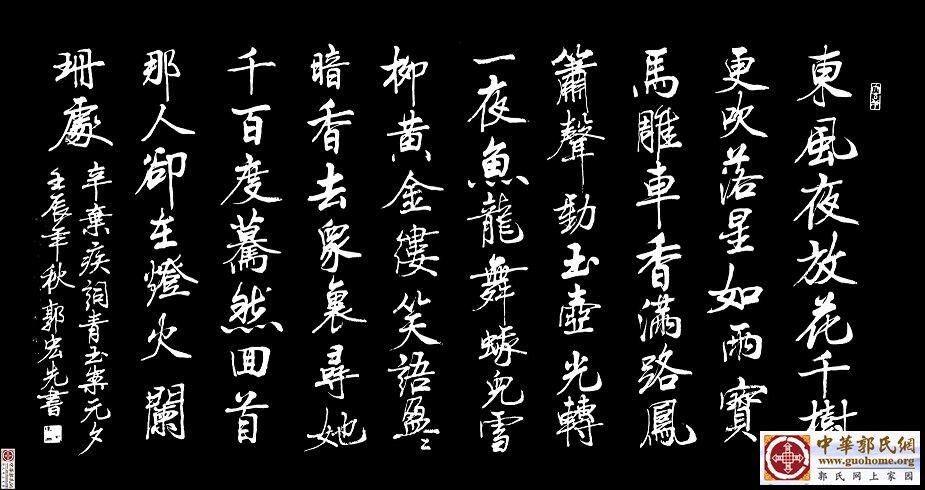 東風夜放花千樹
更吹落星如雨寶
馬雕車香滿路鳳
簫聲動玉壺光轉
一夜魚龍舞蛾兒雪
柳黃金縷笑語盈〻
暗香去衆裏尋她
千百度驀然回首
那人卻在燈火闌
珊處
辛棄疾詞青玉案元夕
壬辰年秋郭宏先書
中華郭氏網
www.guohome.org
郭氏网上家园